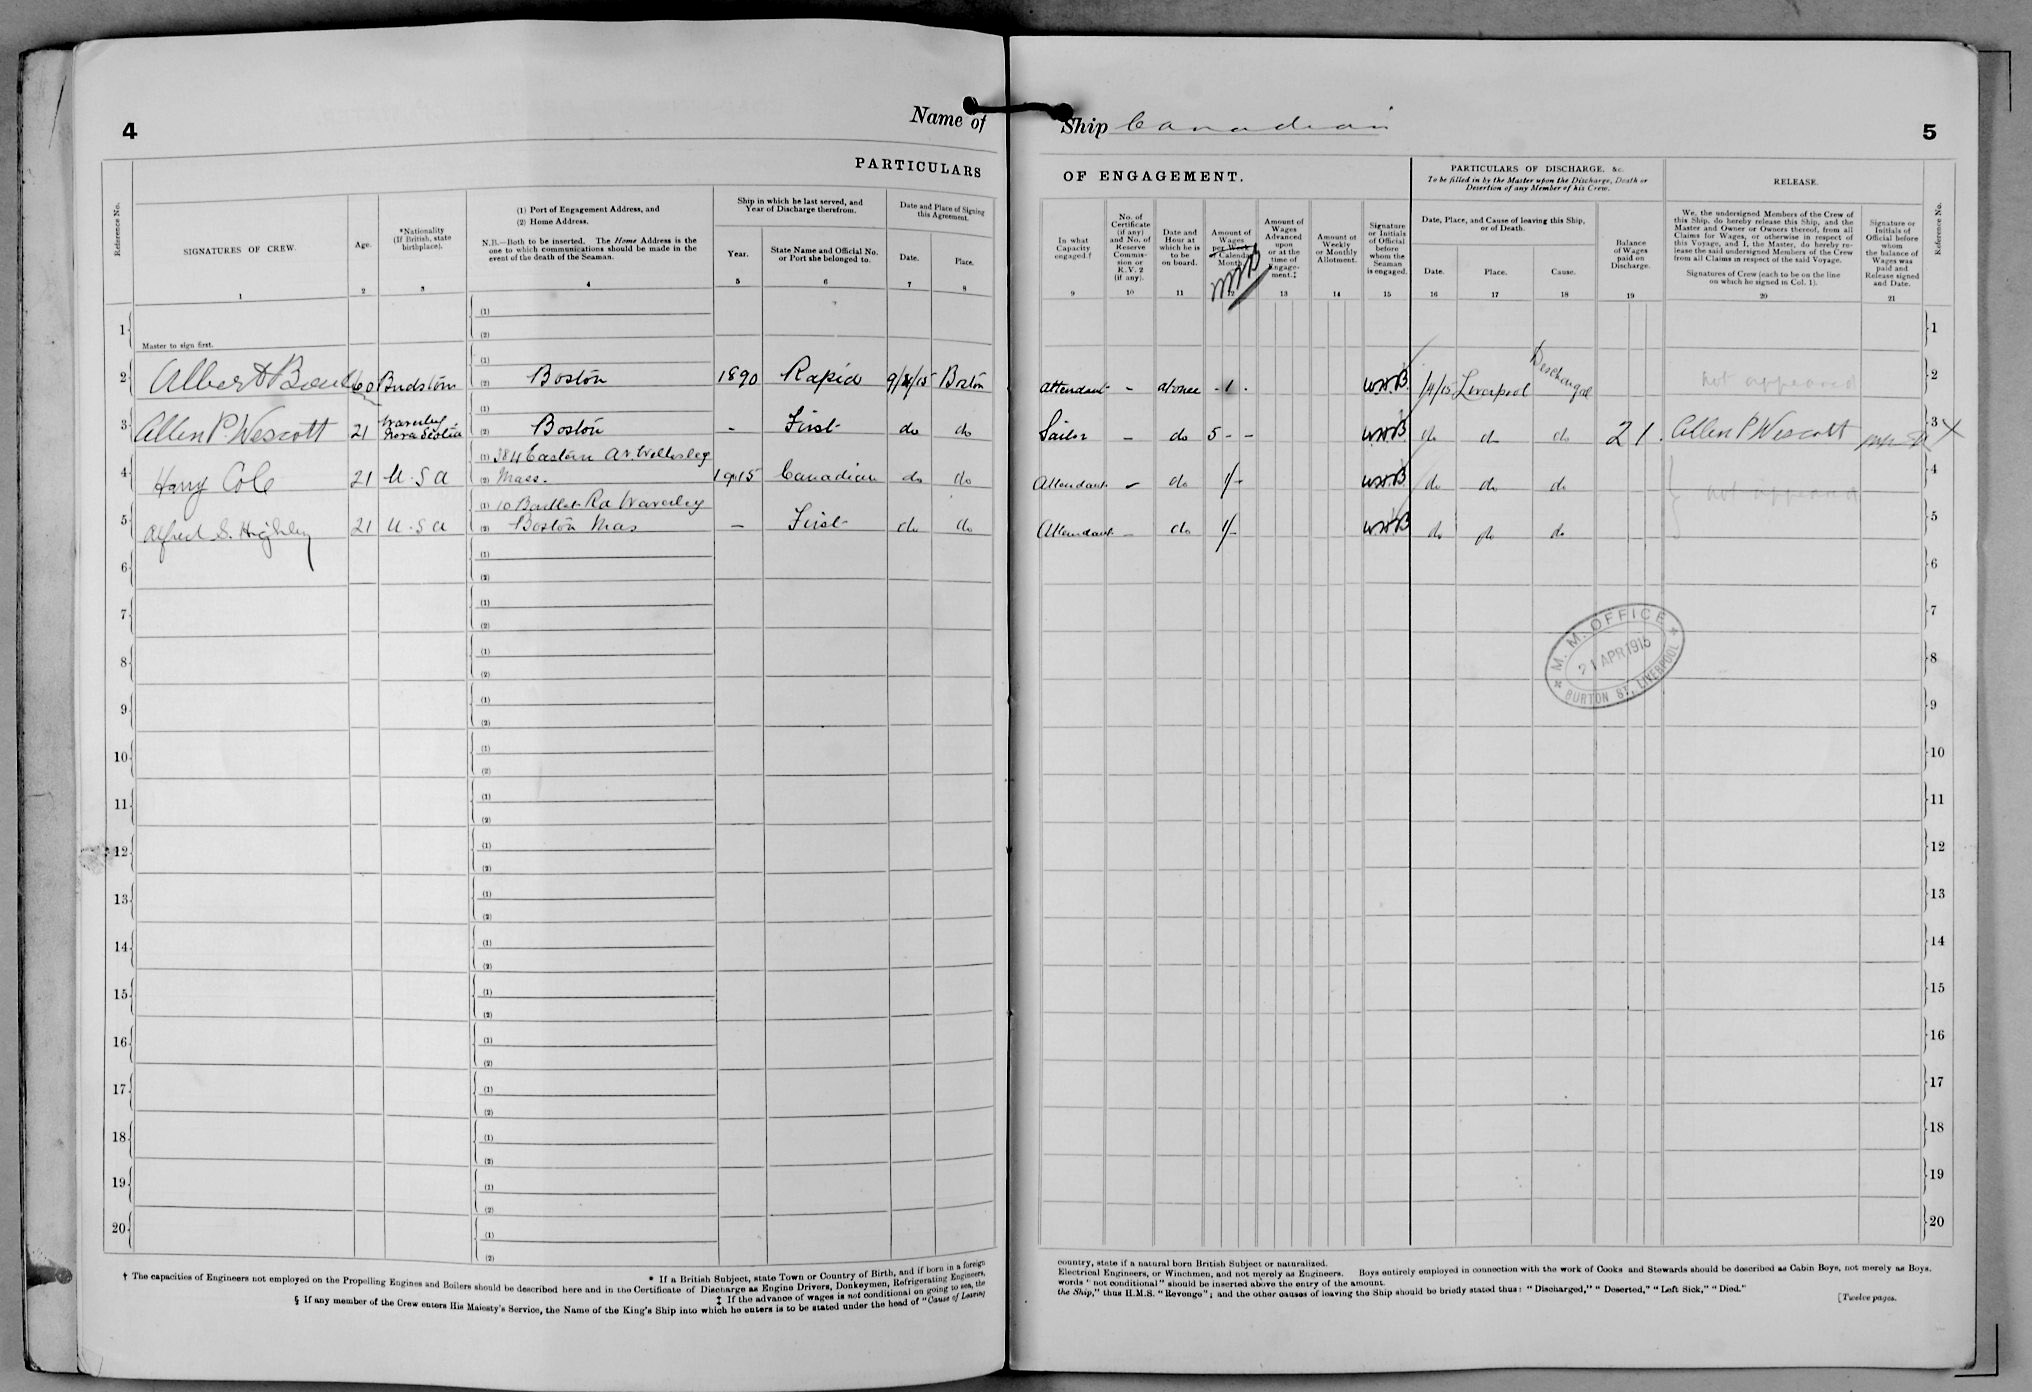 4
Name of
PARTICULARS
Reference No.
SIGNATURES OF CREW.
Age.
*Nationality
(If British, state
birthplace).
(1) Port of Engagement Address, and
(2) Home Address.
N.B.—Both to be inserted. The Home Address is the
one to which communications should be made in the
event of the death of the Seaman.
Ship in which he last served, and
Year of Discharge therefrom.
Year.
State Name and Official No.
or Port she belonged to.
Date and Place of Signing
this Agreement.
Date.
Place.
1 2 3 4 5 6 7 8
1 (1)
Master to sign first. (2)
2 Albert 60 (1)
(2) Boston 1890 Rapid Boston
3 Allen P Wescott 21 Waverley Nova Scotia (1)
(2) Boston - First do do
4 Harry Cole 21 U.S.A (1) 384 Eastern Av. Wellesley
(2) Mass. 1915 Canadian do do
5 Alfred S. Highley 21 U.S.A (1) 10 Rd Waverley
(2) Boston Mas - First do do
6 (1)
(2)
7 (1)
(2)
8 (1)
(2)
9 (1)
(2)
10 (1)
(2)
11 (1)
(2)
12 (1)
(2)
13 (1)
(2)
14 (1)
(2)
15 (1)
(2)
16 (1)
(2)
17 (1)
(2)
18 (1)
(2)
19 (1)
(2)
20 (1)
(2)
* If a British Subject, state Town or Country of Birth, and if born in a foreign
† The capacities of Engineers not employed on the Propelling Engines and Boilers should be described here and in the Certificate of Discharge as Engine Drivers, Donkeymen, Refrigerating Engineers,
‡ If the advance of wages is not conditional on going to sea, the
§ If any member of the Crew enters His Majesty's Service, the Name of the King's Ship into which he enters is to be stated under the head of "Cause of Leaving
Ship Canadian
5
OF ENGAGEMENT.
PARTICULARS OF DISCHARGE, &c.
To be filled in by the Master upon the Discharge, Death or
Desertion of any Member of his Crew.
RELEASE.
In what
Capacity
engaged.†
No. of
Certificate
(if any)
and No. of
Reserve
Commis-
sion or
R.V. 2
(if any).
Date and
Hour at
which he is
to be
on board.
Amount of
Wages
per Week
or Calendar
Month.
Amount of
Wages
Advanced
upon
or at the
time of
Engage-
ment.‡
Amount of
Weekly
or Monthly
Allotment.
Signature
or Initials
of Official
before
whom the
Seaman
is engaged.
Date, Place, and Cause of leaving this Ship,
or of Death.
Date.
Place.
Cause.
Balance
of Wages
paid on
Discharge.
We, the undersigned Members of the Crew of
this Ship, do hereby release this Ship, and the
Master and Owner or Owners thereof, from all
Claims for Wages, or otherwise in respect of
this Voyage, and I, the Master, do hereby re-
lease the said undersigned Members of the Crew
from all Claims in respect of the said Voyage.
Signatures of Crew (each to be on the line
on which he signed in Col. 1).
Signature or
Initials of
Official before
whom
the balance of
Wages was
paid and
Release signed
and Date.
Reference No.
9 10 11 12 13 14 15 16 17 18 19 20 21
1
attendant - at once - 1 - Liverpool Discharged not appeared 2
Sailor - do 5 - - do do do 21. Allen P Wescott 3
Attendant - do 1/- do do do not appeared 4
Attendant - do 1/- do do do 5
6
7
M. M. OFFICE
21 APR 1915
BURTON ST, LIVERPOOL
8
9
10
11
12
13
14
15
16
17
18
19
20
country, state if a natural born British Subject or naturalized.
Electrical Engineers, or Winchmen, and not merely as Engineers. Boys entirely employed in connection with the work of Cooks and Stewards should be described as Cabin Boys, not merely as Boys.
words "not conditional" should be inserted above the entry of the amount.
the Ship," thus H.M.S. "Revenge"; and the other causes of leaving the Ship should be briefly stated thus: "Discharged," "Deserted," "Left Sick," "Died."
[Twelve pages.